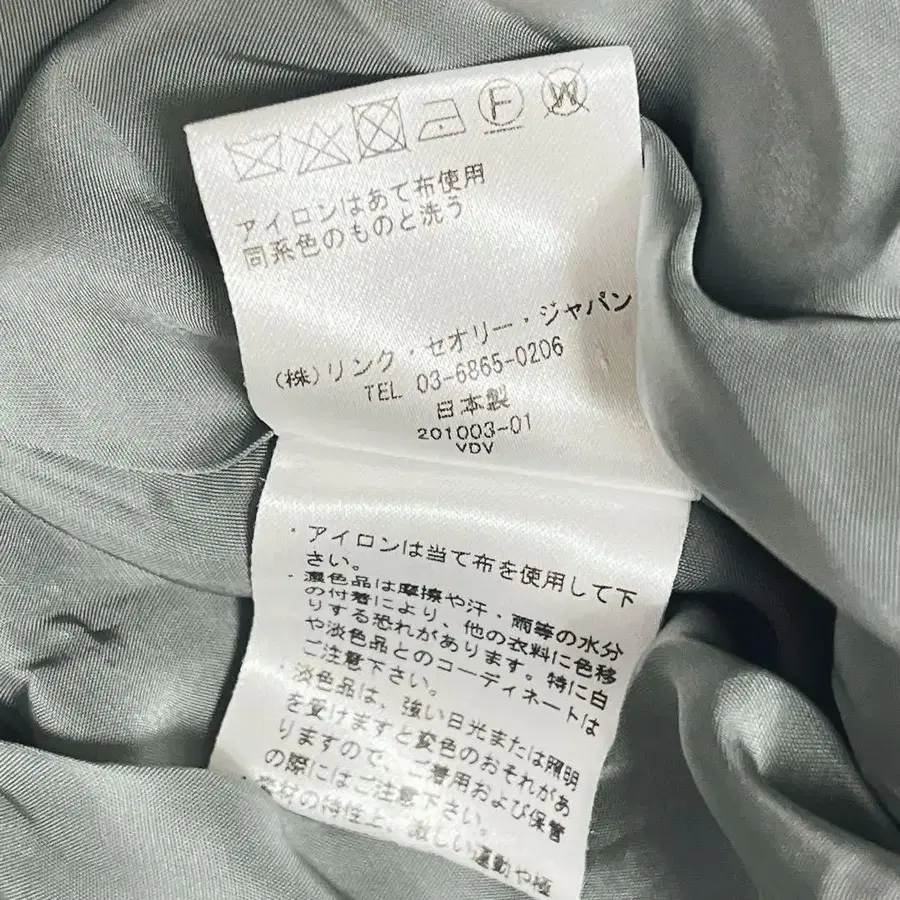 F
W
アイロンはあて布使用
同系色のものと洗う
(株)リンク・セオリー・ジャパン
TEL 03-6865-0206
日本製
201003-01
VDV
・アイロンは当て布を使用して下
さい。
・濃色品は摩擦や汗・雨等の水分
の付着により、他の衣料に色移
りする恐れがあります。特に白
や淡色品とのコーディネートは
ご注意下さい。
・淡色品は、強い日光または照明
を受けますと変色のおそれがあ
りますので、ご着用および保管
の際にはご注意下さい。
素材の特性上、激しい運動や極